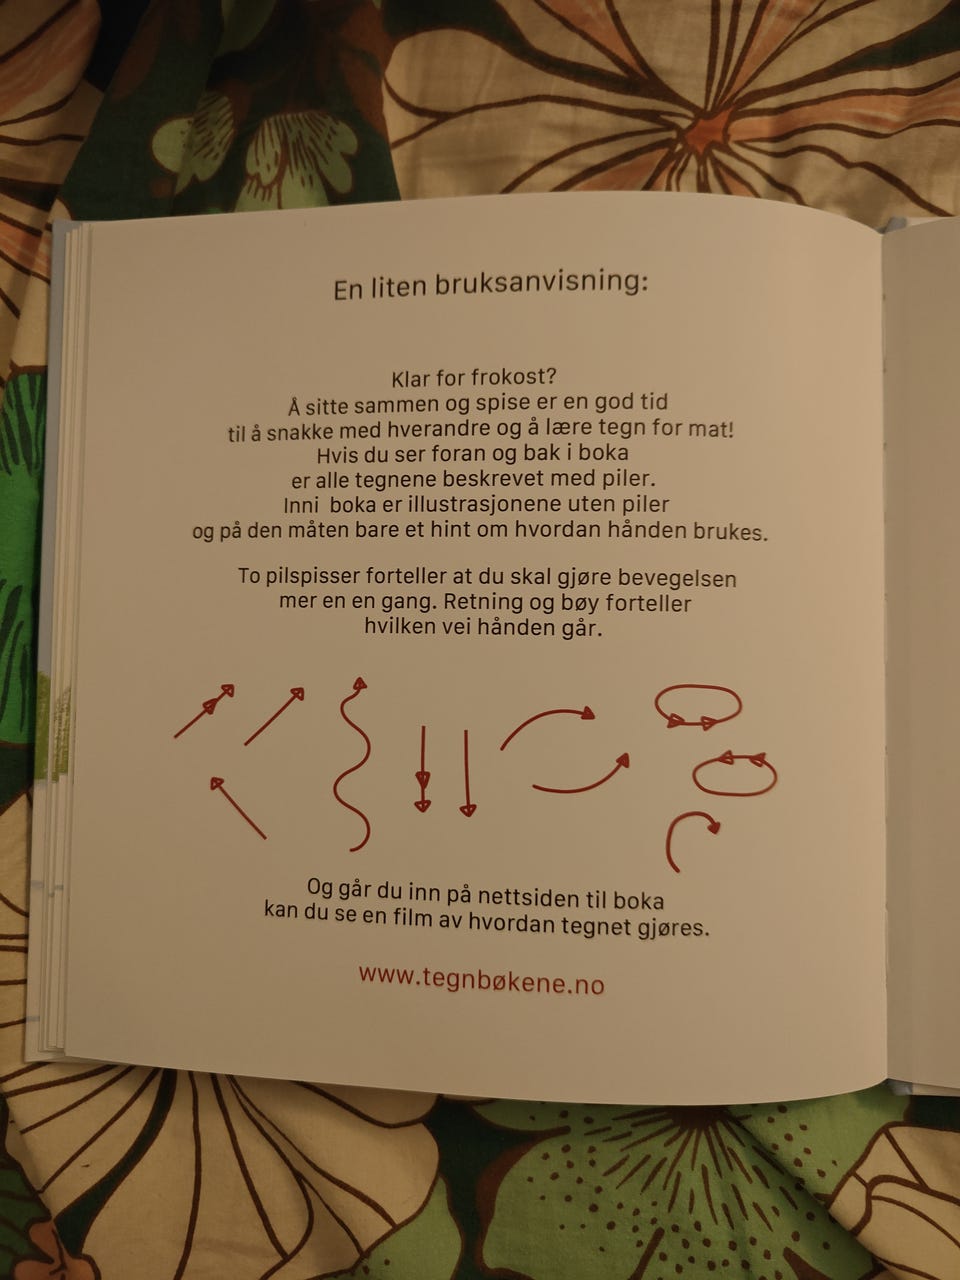 En liten bruksanvisning:
Klar for frokost?
Å sitte sammen og spise er en god tid
til å snakke med hverandre og å lære tegn for mat!
Hvis du ser foran og bak i boka
er alle tegnene beskrevet med piler.
Inni boka er illustrasjonene uten piler
og på den måten bare et hint om hvordan hånden brukes.
To pilspisser forteller at du skal gjøre bevegelsen
mer en en gang. Retning og bøy forteller
hvilken vei hånden går.
Og går du inn på nettsiden til boka
kan du se en film av hvordan tegnet gjøres.
www.tegnbøkene.no